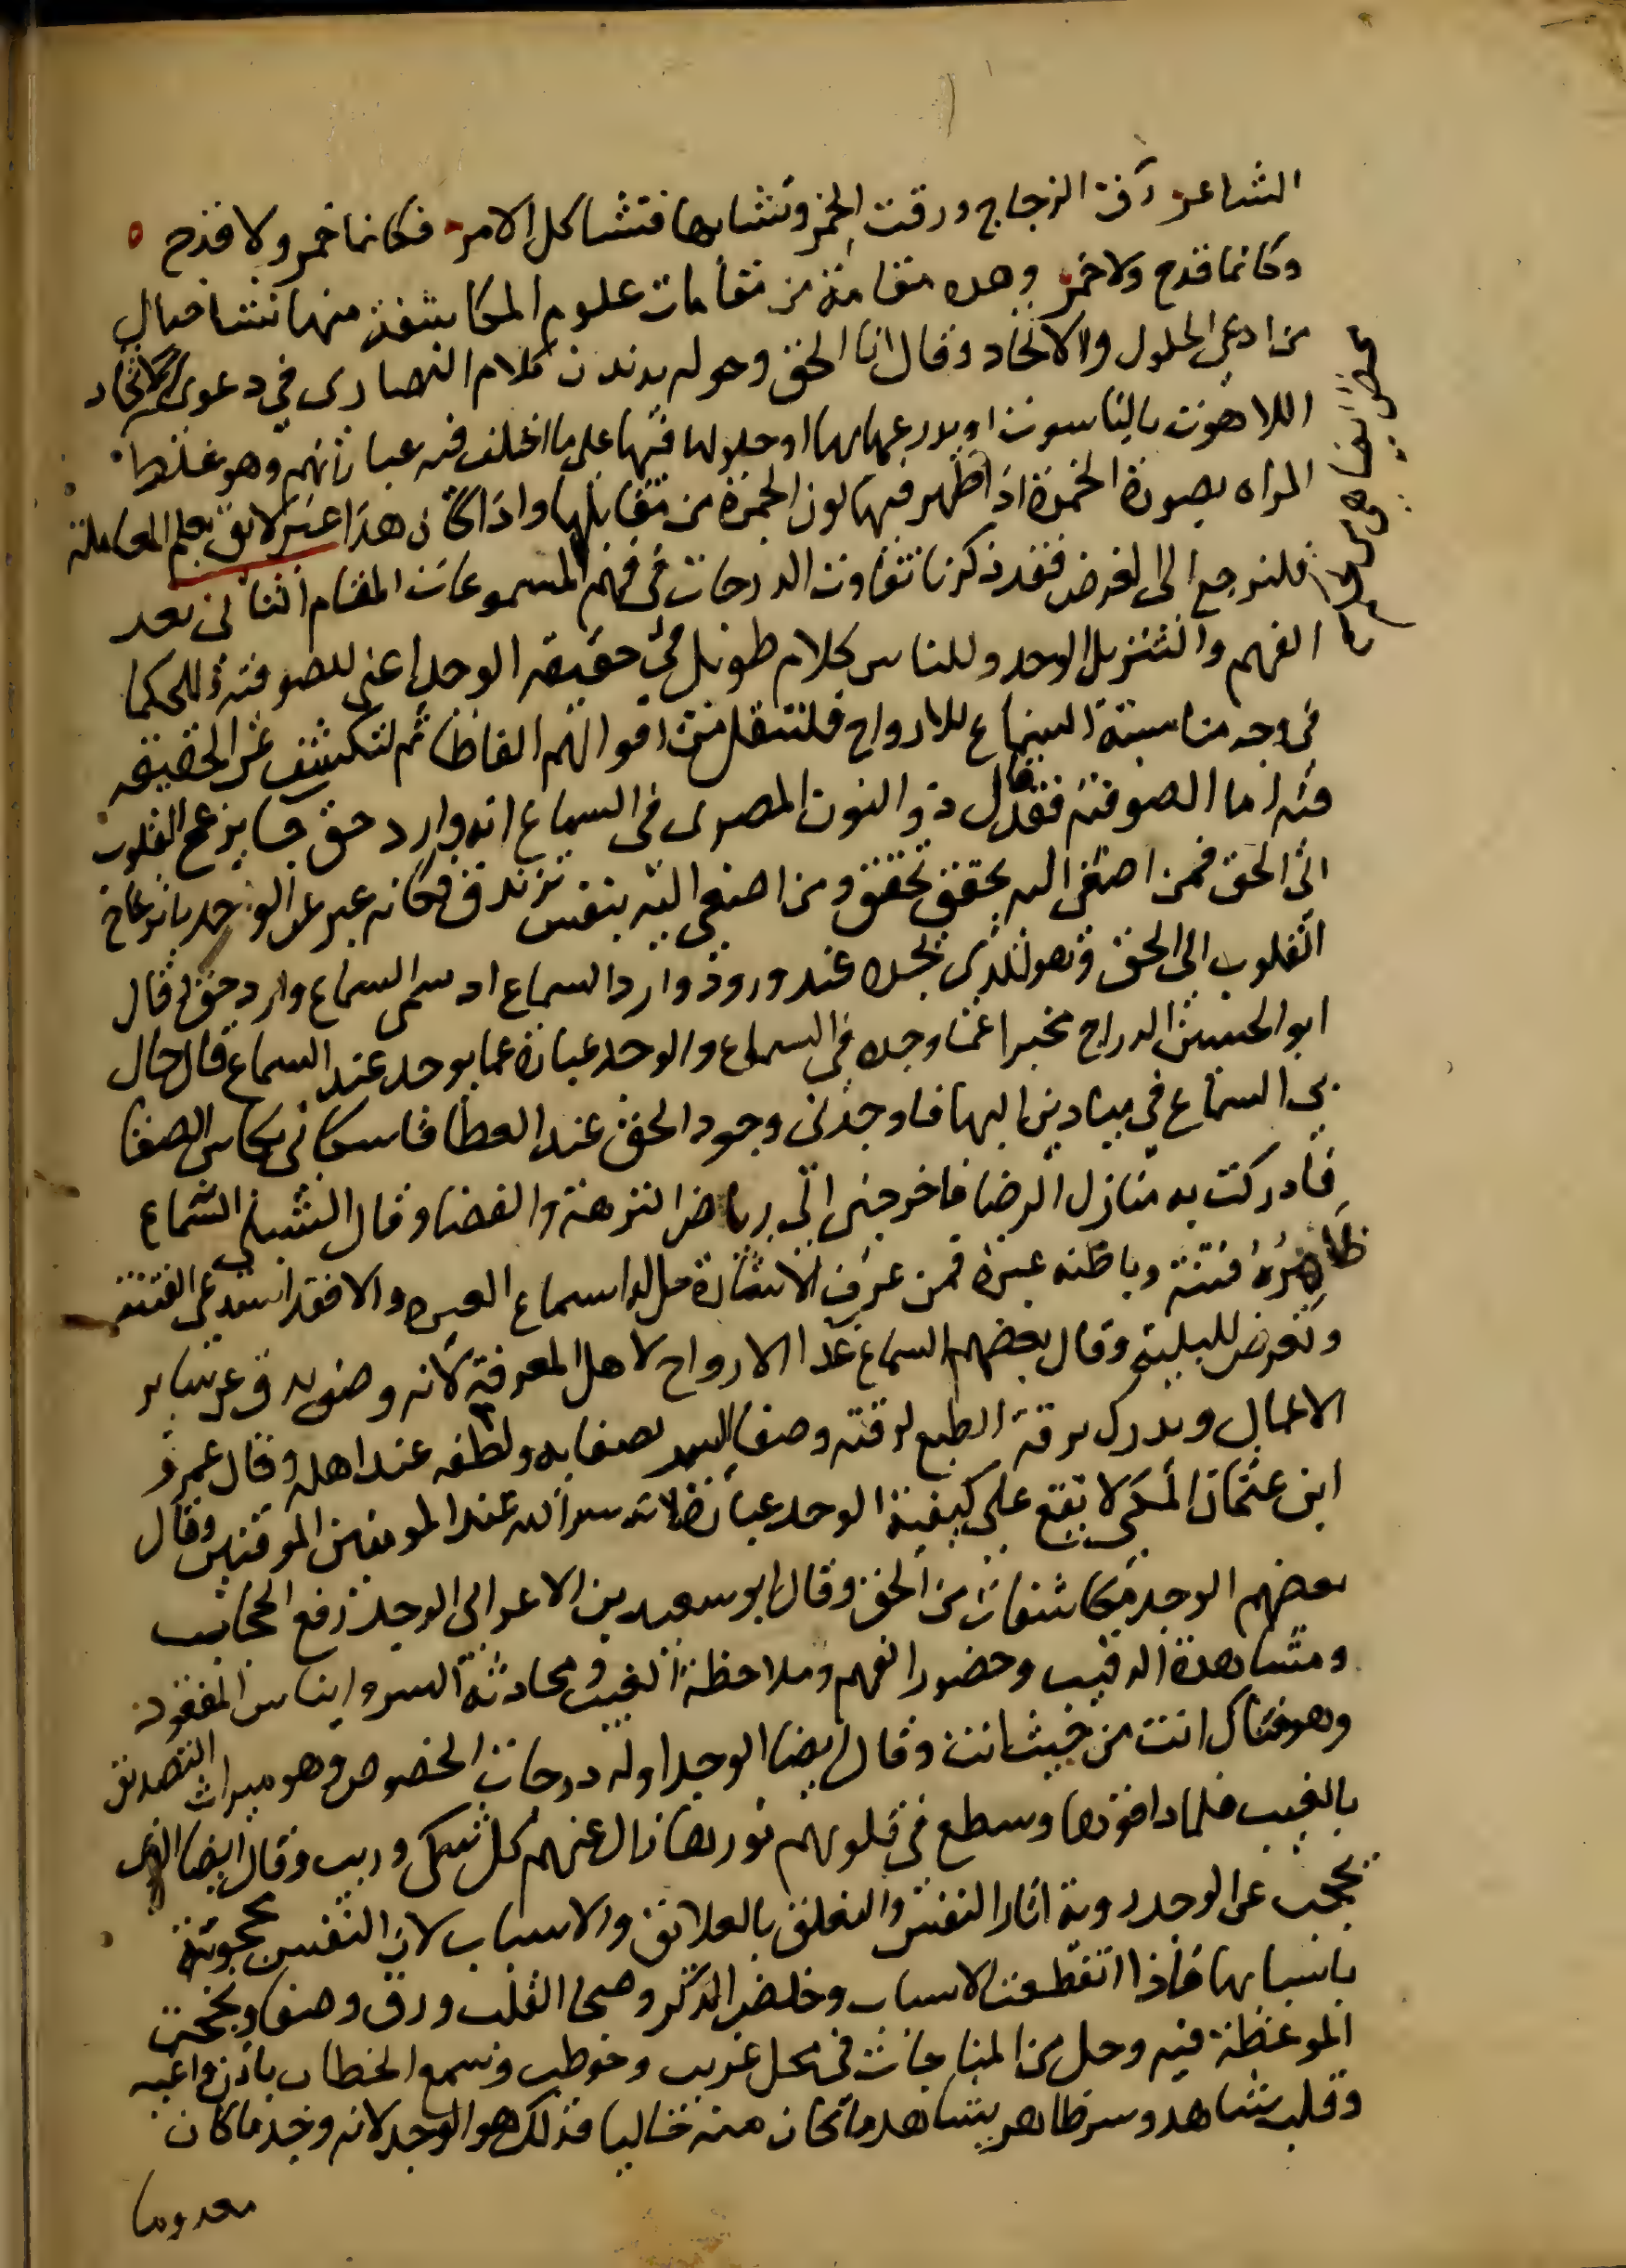 الشاعر رق الزجاج ورقت الخمر وتشابها فتشاكل الامر فكانما خمر ولا قدح
وكانما قدح ولا خمر وهده مقامة من مقامات علوم المكاشفة منها نشا خيال
من ادعى الحلول والاتحاد وقال انا الحق وحوله يدندن كلام النصارى في دعوى الاتحاد
اللاهوت بالناسوت او تدرعها بها او حلولها فيها على ما اختلف فيه عباراتهم وهو غلط
المراه بصورة الحمرة اذا ظهر فيها لون الحمرة من مقابلها واذا كان هذا غير لائق بعلم المعاملة
فلنرجع الى الغرض فقد ذكرنا تفاوت الدرجات في فهم المسموعات المقام الثاني بعد
الفهم والتنزيل الوجد وللناس كلام طويل في حقيقة الوجد اعني للصوفية وللحكما
في وجه مناسبة السماع للارواح فلننقل من اقوالهم الفاظا ثم لنكشف عن الحقيقه
فيه اما الصوفية فقد قال ذو النون المصري في السماع انه وارد حق جا يزعج القلوب
الى الحق فمن اصغى اليه بحق تحقق ومن اصغى اليه بنفس تزندق فكانه عبر عن الوجد بانزعاج
القلوب الى الحق وهو الذي يجده عند ورود وارد السماع اد سمى السماع وارد حق وقال
ابو الحسين الدراج مخبرا عما وجده في السماع والوجد عبارة عما يوجد عند السماع قال جال
بي السماع في ميادين البها فاوجدني وجود الحق عند العطا فاسكاني بكاس الصفا
فادركت به منازل الرضا فاخرجني الى رياض النزهة والفضا وقال الشبلي السماع
ظاهره فتنة وباطنه عبرة فمن عرف الاشارة حل له اسماع العبره والا فقد استدعى الفتنة
وتعرض للبلية وقال بعضهم السماع غدا الارواح لاهل المعرفة لانه وصف يدق عن سائر
الاعمال ويدرك برقة الطبع لرقته وصفا السر لصفايه ولطفه عند اهله وقال عمرو
ابن عثمان المكي لا يقع على كيفية الوجد عبارة لانه سر الله عند المومنين الموقنين وقال
بعضهم الوجد مكاشفات من الحق وقال ابو سعيد بن الاعرابي الوجد رفع الحجاب
ومشاهدة الرقيب وحضور الفهم وملاحظة الغيب ومحادثة السر وايناس المفقود
وهو فناك انت من حيث انت وقال ايضا الوجد اوله درجات الخصوص وهو ميراث التصديق
بالغيب فلما ذاقوها وسطع في قلوبهم نورها زال عنهم كل شك وريب وقال ايضا الذي
يحجب عن الوجد روية اثار النفس والتعلق بالعلائق والاسباب لان النفس محجوبة
باسبابها فاذا انقطعت الاسباب وخلص الذكر وصحا القلب ورق وصفا ونجحت
الموعظة فيه وحل من المناجات في محل غريب وخوطب وسمع الخطاب باذن واعيه
وقلب شاهد وسر ظاهر يشاهد ما كان منه خاليا فذلك هو الوجد لانه وجد ما كان
معدوما